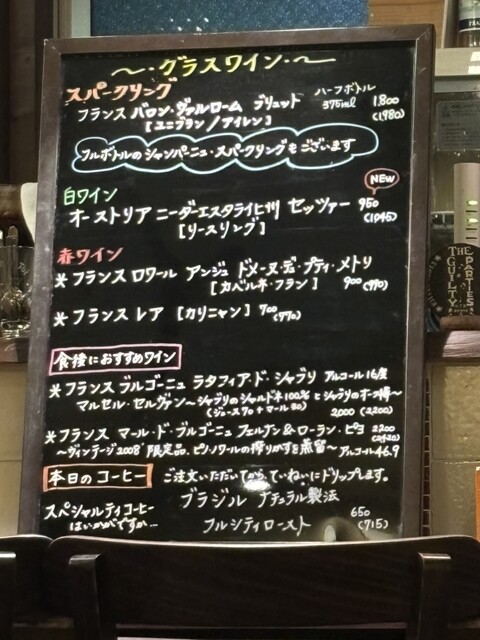 〜・グラスワイン・〜
スパークリング
フランス バロン・ヴァルローム ブリュット ハーフボトル 375ml 1,800
[ユニブラン/アイレン] (1980)
フルボトルのシャンパーニュ・スパークリングもございます
白ワイン NEW
オーストリア ニーダーエスタライヒ州 セッツァー 950
[リースリング] (1045)
赤ワイン
* フランス ロワール アンジュ ドメーヌ・デ・プティ・メトリ
[カベルネ・フラン] 900 (990)
* フランス レア [カリニャン] 700 (770)
食後におすすめワイン
* フランス ブルゴーニュ ラタフィア・ド・シャブリ アルコール16度
マルセル・セルヴァン〜シャブリのシャルドネ100%とシャブリのオー・ド・
(ジュース70+マール30) 2000 (2200)
* フランス マール・ド・ブルゴーニュ フェルナン&ローラン・ピヨ 2200
〜ヴィンテージ2008 限定品、ピノ・ノワールの搾りかすを蒸留〜アルコール46.9 (2420)
本日のコーヒー ご注文いただいてから、ていねいにドリップします。
スペシャルティコーヒー ブラジル ナチュラル製法
はいかがですか… フルシティロースト 650 (715)
THE GUILTY PARTIES